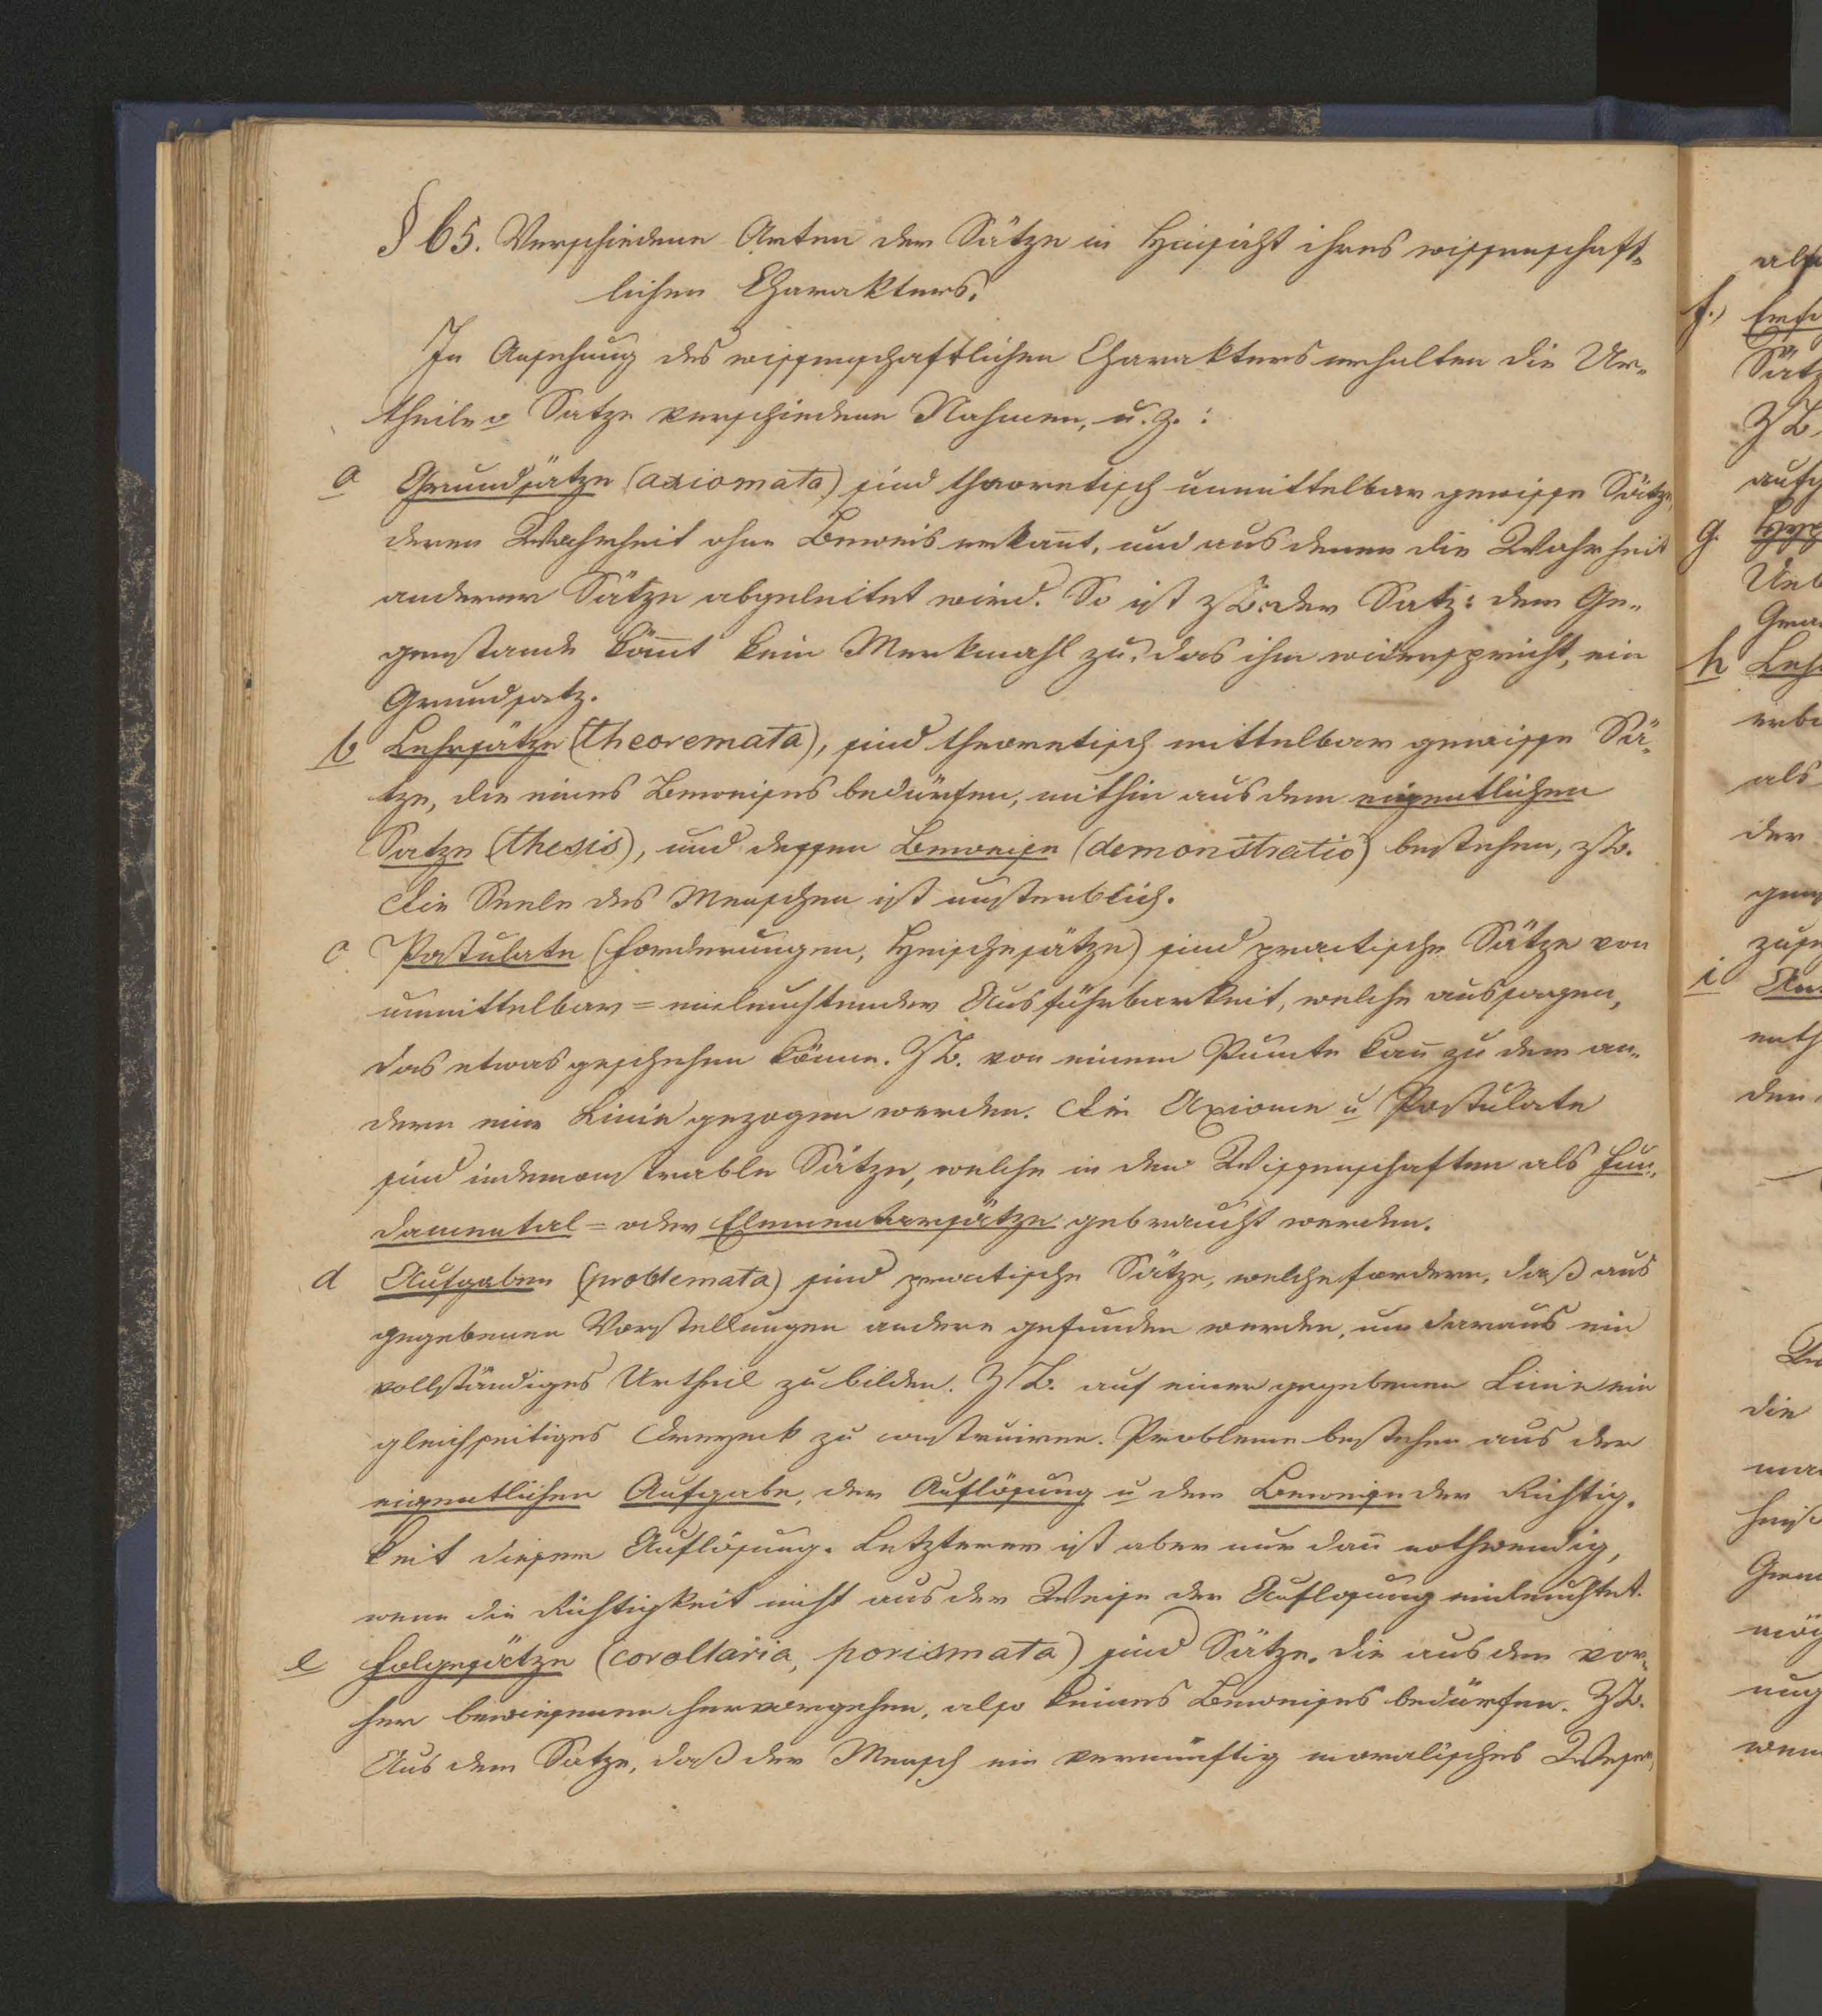 § 65. Verschiedene Arten der Sätze in Hinsicht ihres wissenschaft-
lichen Charakters.
In Ansehung des wissenschaftlichen Charakters erhalten die Ur-
theile o Satze verschiedene Nahmen, u. z. :
a Grundsätze (axiomata) sind theoretisch unmittelbar gewisse Sätze,
deren Wahrheit ohne Beweis erkannt, und aus denen die Wahrheit
anderer Sätze abgeleitet wird. So ist zB. der Satz: dem Ge-
genstande kömt kein Merkmahl zu, das ihm widerspricht, ein
Grundsatz.
b Lehrsätze (theoremata), sind theoretisch mittelbar gewisse Sä-
tze, die eines Beweises bedürfen, mithin aus dem eigentlichen
Satze (thesis), und dessen Beweise (demonstratio) bestehen, zB.
Die Seele des Menschen ist unsterblich.
c. Postulate (Forderungen, Heischesätze) sind practische Sätze von
unmittelbar=einleuchtender Ausführbarkeit, welche aussagen,
das etwas geschehen könne. ZB. von einem Puncte kan̄ zu dem an-
dern eine Linie gezogen werden. Die Axiome u Postulate
sind indemonstrable Sätze, welche in den Wissenschaften als Fun-
damental= oder Elementarsätze gebraucht werden.
d Aufgaben (problemata) sind practische Sätze, welche fordern, daß aus
gegebenen Vorstellungen andere gefunden werden, um daraus ein
vollständiges Urtheil zu bilden. ZB. auf einer gegebenen Linie ein
gleichseitiges Dreyeck zu construiren. Probleme bestehen aus der
eigentlichen Aufgabe, der Auflösung u dem Beweise der Richtig-
keit dieser Auflösung. Letzterer ist aber nur dan̄ nothwendig,
wenn die Richtigkeit nicht aus der Weise der Auflosung einleuchtet.
e Folgesätze (corollaria, porismata) sind Sätze, die aus dem vor-
her bewiesenen hervorgehen, also keines Beweises bedürfen. ZB.
Aus dem Satze, daß der Mensch ein vernünftig moralisches Wesen,
f.)
Sätz
ZB.
g.
h
als
der
i
den
die